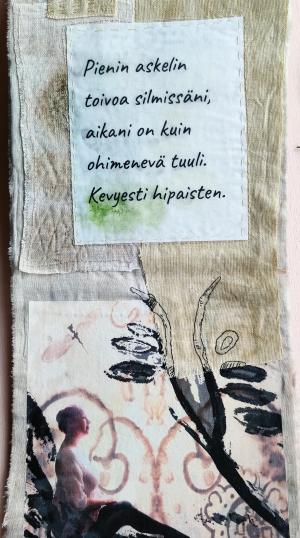 Pienin askelin
toivoa silmissäni,
aikani on kuin
ohimenevä tuuli.
Kevyesti hipaisten.